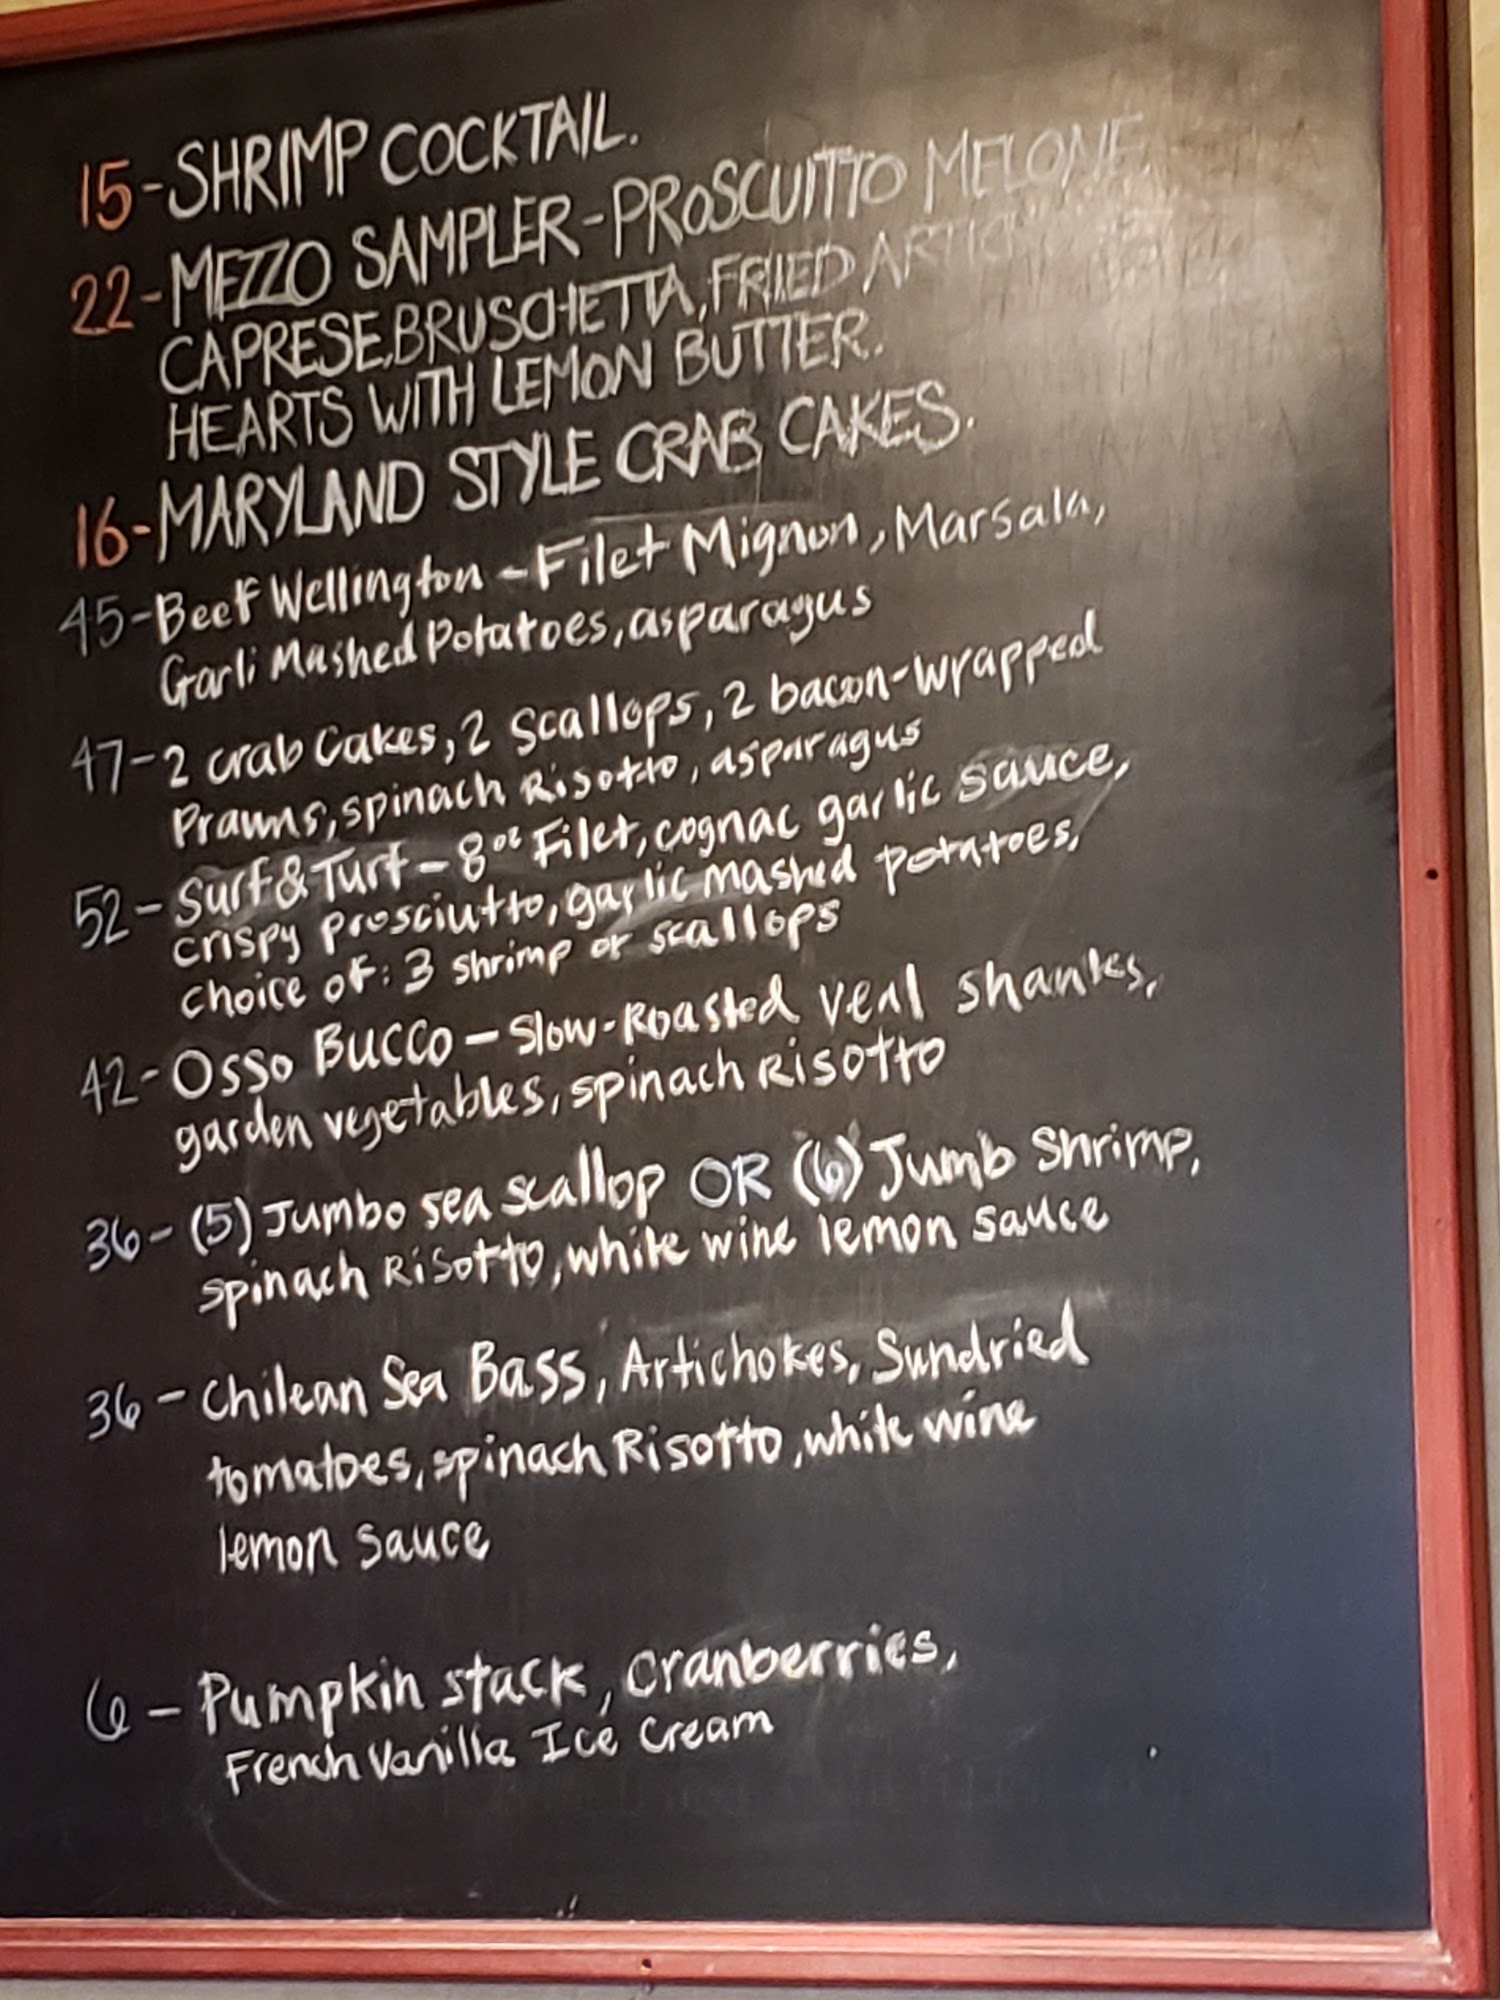 15-SHRIMP COCKTAIL.
22-MEZZO SAMPLER-PROSCUITTO MELONE,
CAPRESE,BRUSCHETTA,FRIED
HEARTS WITH LEMON BUTTER.
16-MARYLAND STYLE CRAB CAKES.
45-Beef Wellington - Filet Mignon, Marsala,
Garli Mashed Potatoes, asparagus
47-2 crab Cakes, 2 Scallops, 2 bacon-wrapped
Prawns, spinach Risotto, asparagus
52- Surf & Turf - 8oz Filet, cognac garlic sauce,
crispy prosciutto, garlic mashed potatoes,
choice of: 3 shrimp or scallops
42- Osso Bucco - Slow-Roasted veal shanks,
garden vegetables, spinach Risotto
36- (5) Jumbo sea scallop OR (6) Jumb Shrimp,
spinach Risotto, white wine lemon sauce
36 - Chilean Sea Bass, Artichokes, Sundried
tomatoes, spinach Risotto, white wine
lemon sauce
6 - Pumpkin stack, Cranberries,
French Vanilla Ice Cream